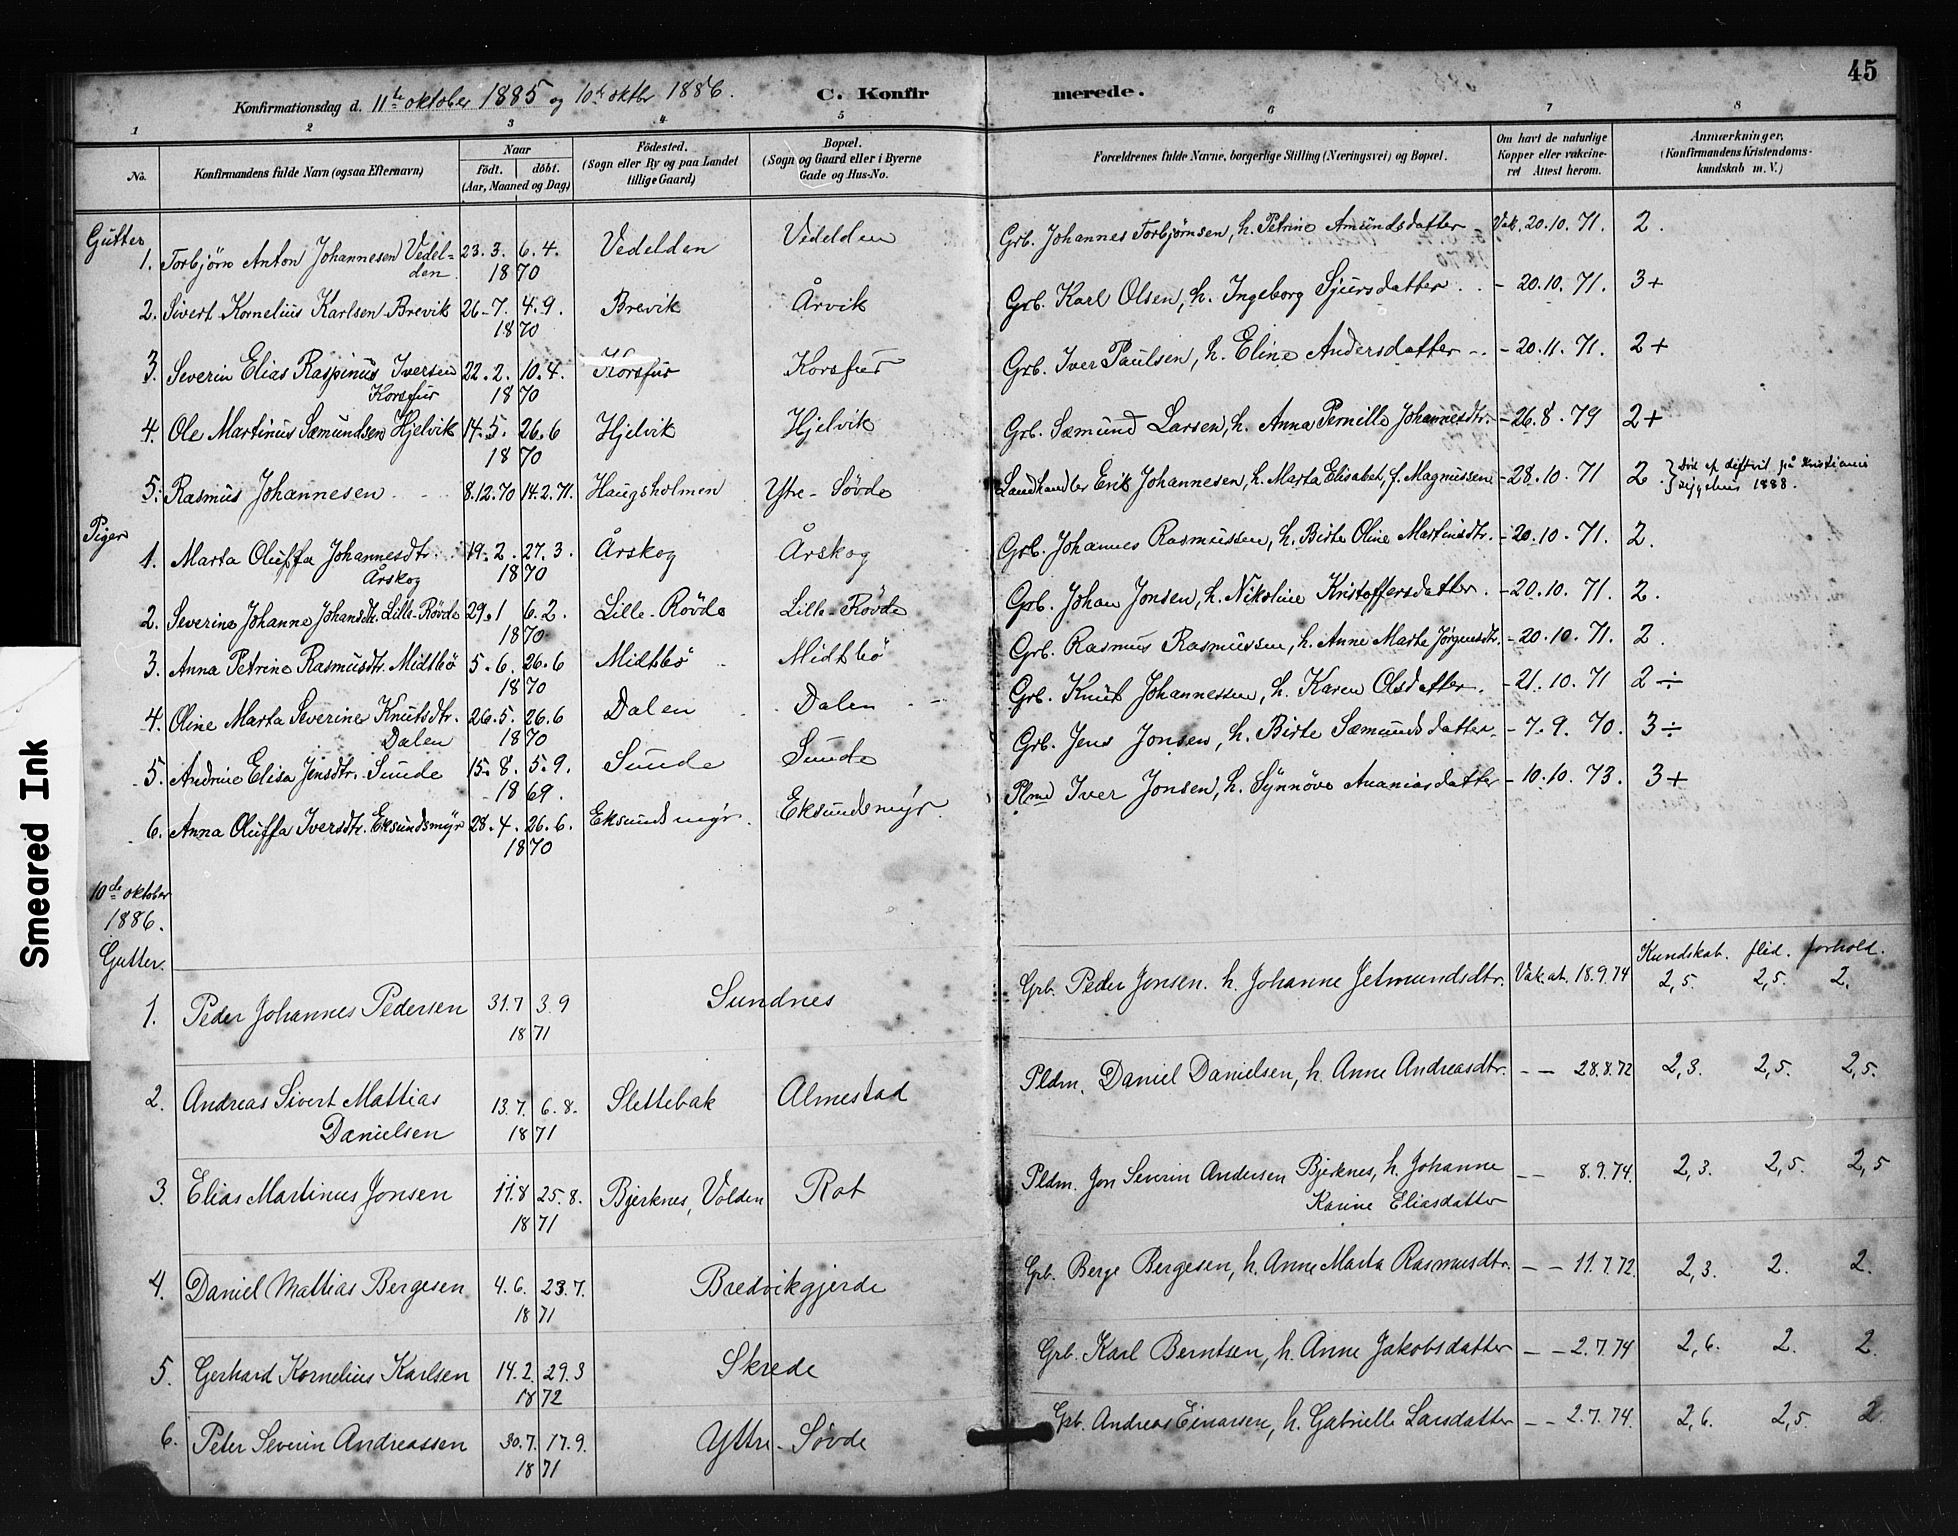 45
Konfirmationsdag d. 11te oktober 1885 og 10de oktbr 1886. C. Konfirmerede.
1 2 3 4 5 6 7 8
No. Konfirmandens fulde Navn (ogsaa Efternavn) Naar født. døbt. (Aar, Maaned og Dag) Fødested. (Sogn eller By og paa Landet tillige Gaard) Bopæl. (Sogn og Gaard eller i Byerne Gade og Hus-No. Forældrenes fulde Navne, borgerlige Stilling (Næringsvei) og Bopæl. Om havt de naturlige Kopper eller vakcineret Attest herom. Anmærkninger, (Konfirmandens Kristendomskundskab m. V.)
Gutter
1. Torbjørn Anton Johannesen Vedelden 23.3. 6.4. 1870 Vedelden Vedelden Grb. Johannes Torbjørnsen, h. Petrine Amundsdatter Vak. 20.10.71. 2.
2. Sivert Kornelius Karlsen Brevik 26.7. 4.9. 1870 Brevik Årvik Grb. Karl Olsen, h. Ingeborg Sjursdatter - 20.10.71. 3+
3. Severin Elias Raspinus Iversen Korsfur 22.2. 10.4. 1870 Korsfur Korsfur Grb. Iver Paulsen, h. Eline Andersdatter - 20.11.71. 2+
4. Ole Martinus Sæmundsen Hjelvik 14.5. 26.6 1870 Hjelvik Hjelvik Grb. Sæmund Larsen, h. Anna Pernille Johannesdtr. - 26.8.79 2+
5. Rasmus Johannesen 8.12.70 14.2.71. Haugsholmen Ytre-Søvde Landhandler Erik Johannesen, h. Marta Elisabet, f. Magnussen - 28.10.71 2. Død af diftrit på Kristiania sygehus 1888.
Piger
1. Marta Oluffa Johannesdtr. Årskog 19.2. 27.3. 1870 Årskog Årskog Grb. Johannes Rasmussen, h. Birte Oline Martinsdtr. - 20.10.71. 2.
2. Severine Johanne Johansdtr. Lille-Røvde 29.1 6.2. 1870 Lille-Røvde Lille-Røvde Grb. Johan Jonsen, h. Nikoline Kristoffersdatter. - 20.10.71. 2.
3. Anna Petrine Rasmusdtr. Midtbø 5.6. 26.6 1870 Midtbø Midtbø Grb. Rasmus Rasmussen, h. Anne Marte Jørgensdtr. - 20.10.71. 2.
4. Oline Marta Severine Knutsdtr. Dalen 26.5. 26.6 1870 Dalen Dalen Grb. Knut Johannessen, h. Karen Olsdatter. - 21.10.71 2÷
5. Andrine Elisa Jensdtr. Sunde 15.8. 5.9. 1869. Sunde Sunde Grb. Jens Jonsen, h. Birte Sæmundsdatter. - 7.9.70. 3÷
6. Anna Oluffa Iversdtr. Eksundsmyr 28.4. 26.6. 1870 Eksundsmyr. Eksundsmyr. Plmd Iver Jonsen, h. Synnøve Ananiasdatter - 10.10.73. 3+
10de oktober
1886.
Gutter. Kundskab. flid. forhold.
1. Peder Johannes Pedersen 31.7 3.9 1871 Sundnes Grb. Peder Jonsen. h. Johanne Jetmundsdtr. Vak. at. 18.9.74 2,5. 2,5. 2.
2. Andreas Sivert Mattias Danielsen 13.7. 6.8. 1871 Slettebak Almestad Pldm. Daniel Danielsen, h. Anne Andreasdtr. - - 28.8.72 2,3. 2,5. 2,5.
3. Elias Martinus Jonsen 11.8 25.8. 1871 Bjerknes, Volden Rot Pldm. Jon Severin Andersen Bjerknes, h. Johanne Karine Eliasdatter - - 8.9.74. 2,3. 2,5. 2,5
4. Daniel Mattias Bergesen 4.6. 23.7. 1871 Bredvikgjerde Grb. Berge Bergesen, h. Anne Marta Rasmusdtr. - - 11.7.72. 2,3. 2. 2.
5. Gerhard Kornelius Karlsen 14.2. 29.3 1872 Skrede Grb. Karl Berntsen, h. Anne Jakobsdatter - - 2.7.74 2,6. 2. 2.
6. Peter Severin Andreassen 30.7. 17.9. 1871 Yttre-Søvde Grb. Andreas Einarsen, h. Gabrielle Larsdatter - - 2.7.74. 2,6. 2,5. 2.
Smeared Ink